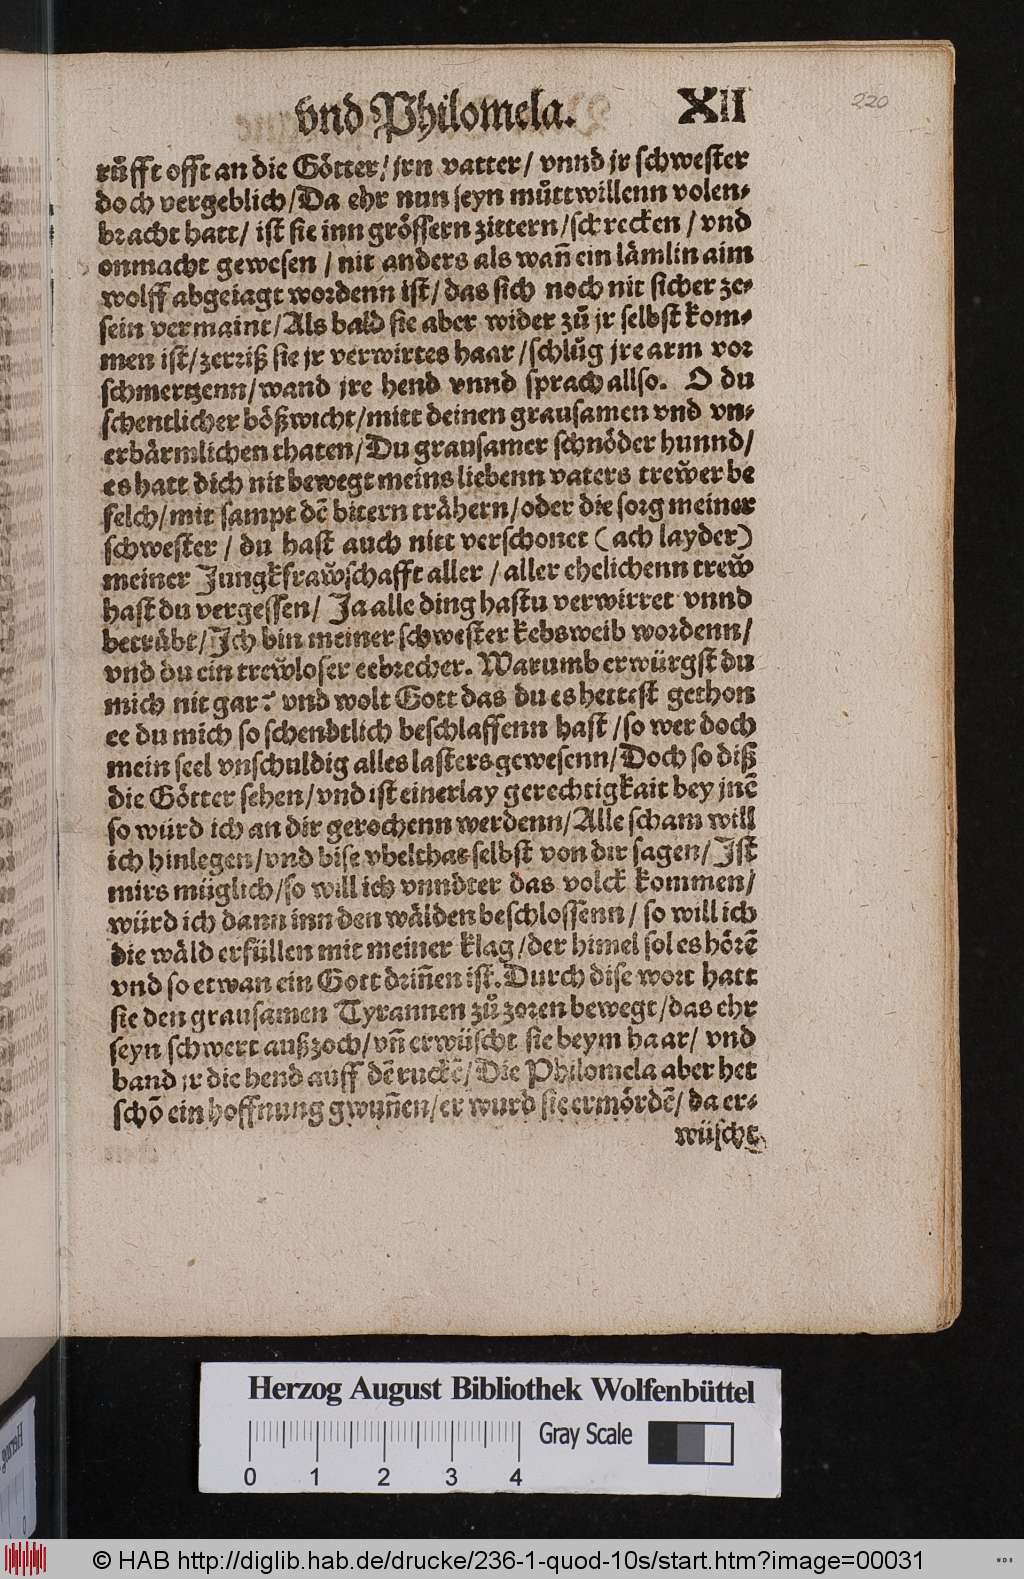 vnd Philomela. XII
220
růfft offt an die Götter/ jrn vatter/ vnnd jr schwester
doch vergeblich/ Da ehr nun seyn můttwillenn volen-
bracht hatt/ ist sie inn grössern zittern/ schrecken/ vnd
onmacht gewesen/ nit anders als wañ ein lämlin aim
wolff abgeiagt wordenn ist/ das sich noch nit sicher ze-
sein vermaint/ Als bald sie aber wider zů jr selbst kom-
men ist/ zerriß sie jr verwirtes haar/ schlůg jre arm vor
schmertzenn/ wand jre hend vnnd sprach allso. O du
schentlicher bößwicht/ mitt deinen grausamen vnd vn-
erbärmlichen thaten/ Du grausamer schnöder hunnd/
es hatt dich nit bewegt meins liebenn vaters trew̃er be
felch/ mit sampt dē bitern trähern/ oder die sorg meiner
schwester/ du hast auch nitt verschonet (ach layder)
meiner Jungkfraw̃schafft aller/ aller ehelichenn trew̃
hast du vergessen/ Ja alle ding hastu verwirret vnnd
betrübt/ Ich bin meiner schwester kebsweib wordenn/
vnd du ein trew̃loser eebrecher. Warumb erwürgst du
mich nit gar? vnd wolt Gott das du es hettest gethon
ee du mich so schendtlich beschlaffenn hast/ so wer doch
mein seel vnschuldig alles lasters gewesenn/ Doch so diß
die Götter sehen/ vnd ist einerlay gerechtigkait bey jnē
so würd ich an dir gerochenn werdenn/ Alle scham will
ich hinlegen/ vnd dise vbelthat selbst von dir sagen/ Ist
mirs müglich/ so will ich vnndter das volck kommen/
würd ich dann inn den wälden beschlossenn/ so will ich
die wäld erfüllen mit meiner klag/ der himel sol es hörē
vnd so etwan ein Gott driñen ist. Durch dise wort hatt
sie den grausamen Tyrannen zů zoren bewegt/ das ehr
seyn schwert außzoch/ vñ erwüscht sie beym haar/ vnd
band jr die hend auff dē ruckē/ Die Philomela aber het
schō ein hoffnung gwuñen/ er wurd sie ermördē/ da er-
wüscht
Herzog August Bibliothek Wolfenbüttel
Gray Scale
0 1 2 3 4
© HAB http://diglib.hab.de/drucke/236-1-quod-10s/start.htm?image=00031